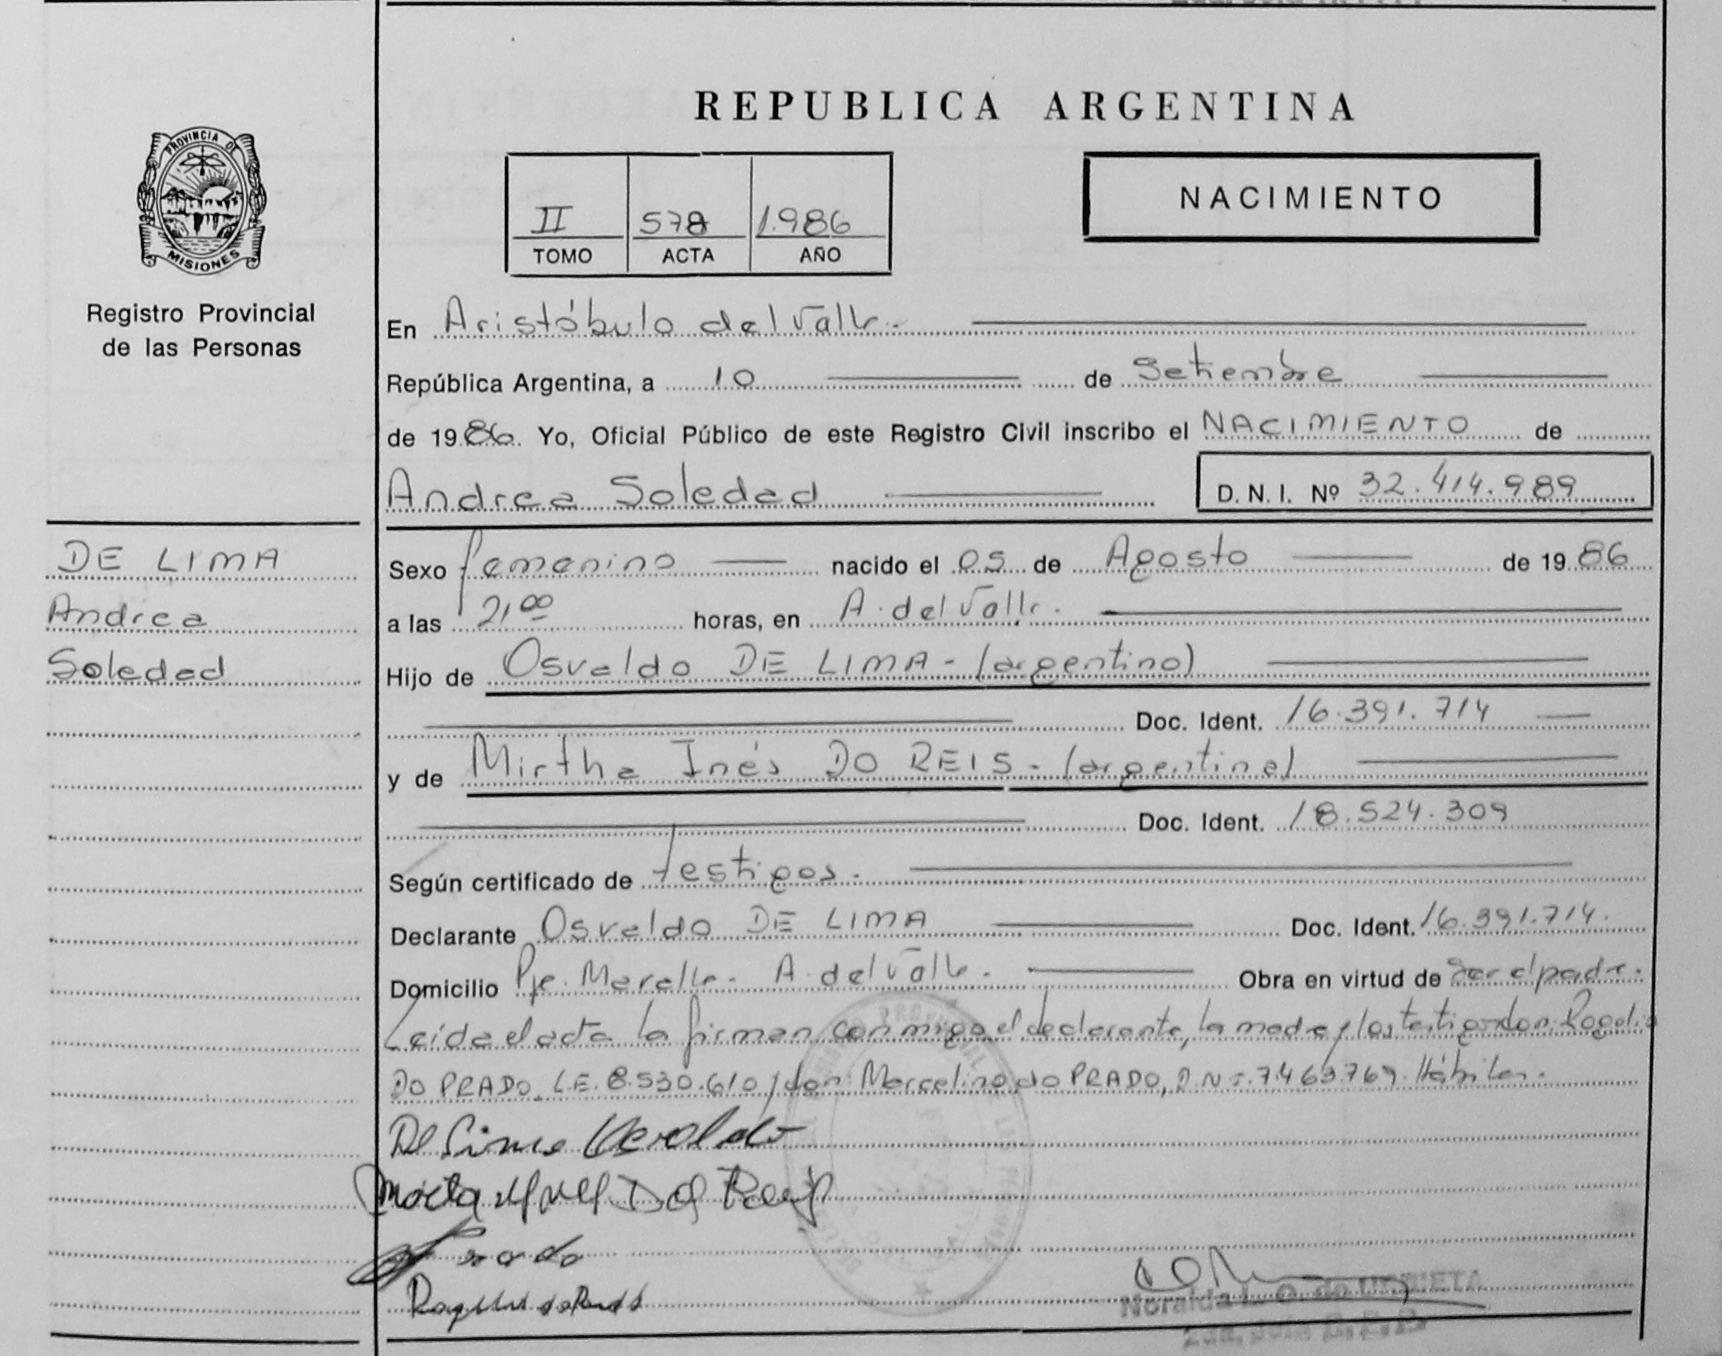 REPUBLICA ARGENTINA
PROVINCIA DE
MISIONES
Registro Provincial
de las Personas
II 578 1.986
TOMO ACTA AÑO
NACIMIENTO
En Aristóbulo del Valle.
República Argentina, a 10 de Setiembre
de 1986. Yo, Oficial Público de este Registro Civil inscribo el NACIMIENTO de
Andrea Soledad D. N. I. Nº 32.414.989
DE LIMA
Andrea
Soledad
Sexo femenino nacido el 05 de Agosto de 1986
a las 21⁰⁰ horas, en A. del Valle.
Hijo de Osvaldo DE LIMA - (argentino)
Doc. Ident. 16.391.714
y de Mirtha Inés DO REIS - (argentina)
Doc. Ident. 18.524.309
Según certificado de testigos.
Declarante Osvaldo DE LIMA Doc. Ident. 16.391.714.
Domicilio Pje. - A. del Valle. Obra en virtud de ser el padre.
Leída el acta la firman conmigo el declarante, la madre y los testigos don Rogelio
DO PRADO, L.E. 8.530.610 y don Marcelino do PRADO, 7.463.769. Hábiles.
De Lima
Noralda L. O. de URRIETA